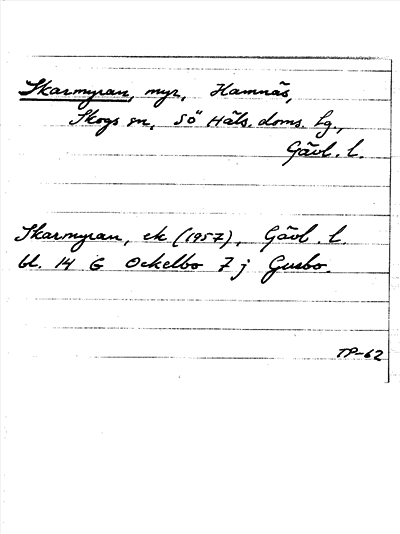 Skarmyran, myr, Hamnäs,
Skogs sn, Sö Häls. doms. lg.,
Gävl. l.
Skarmyran, ek (1957), Gävl. l.
bl. 14 G Ockelbo 7 j Gusbo.
TP-62